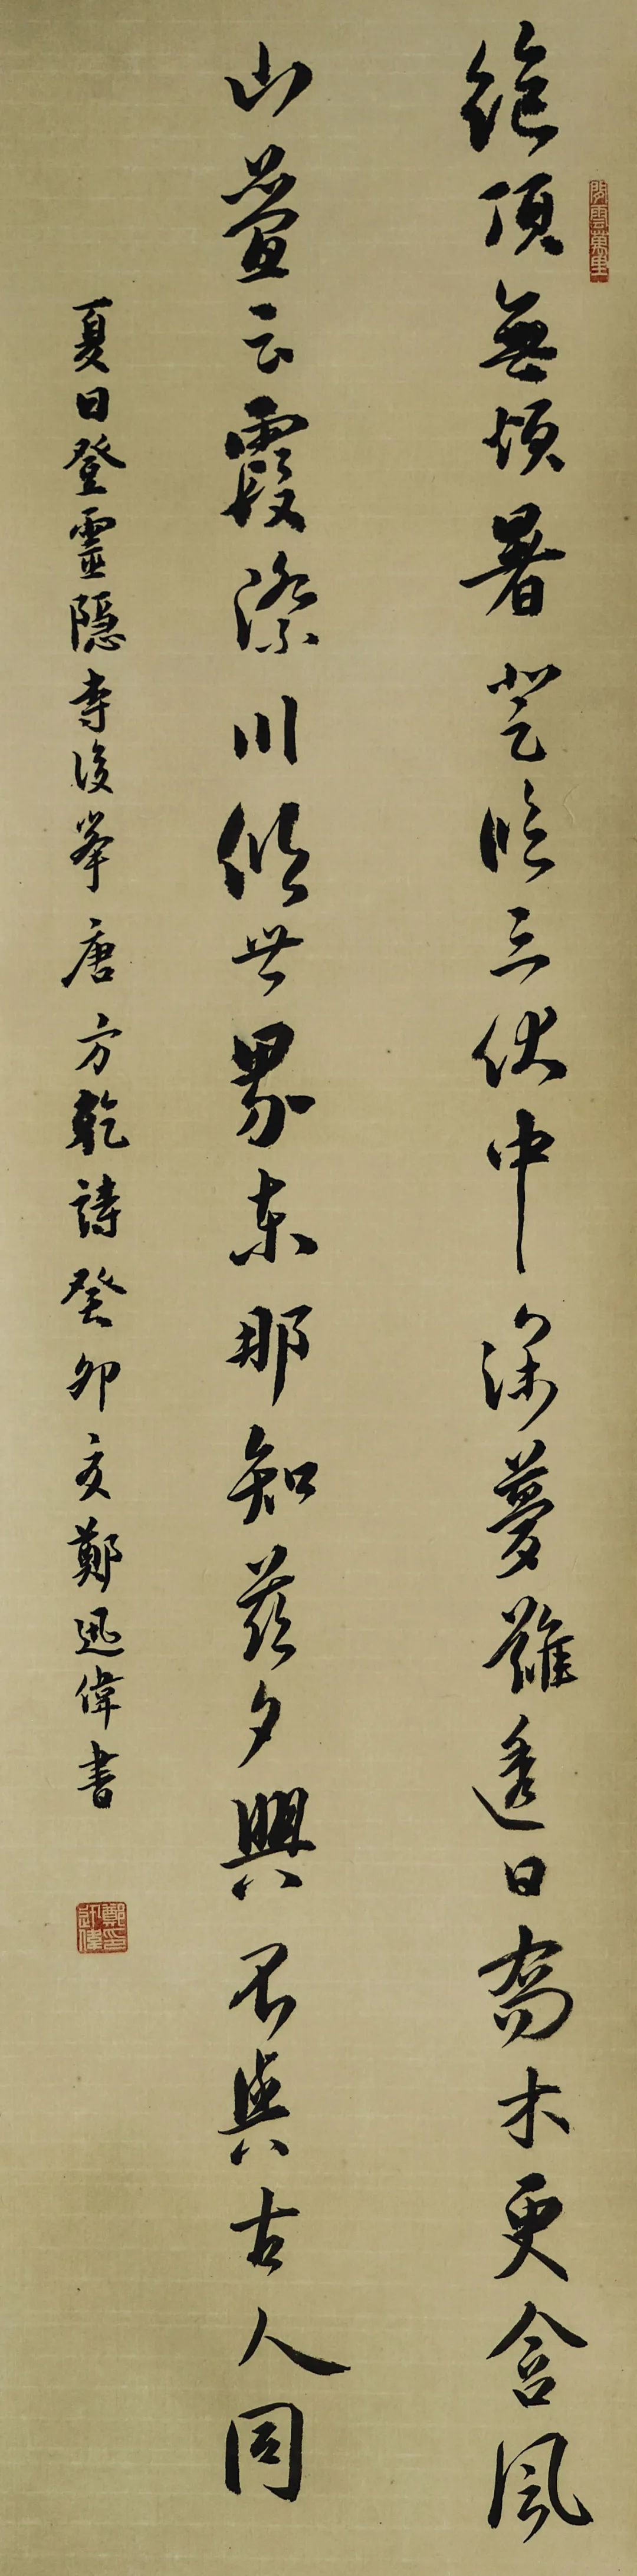 絕頂無煩暑登臨三伏中深夢難透日喬木更含風
山疊云霞際川傾世界東那知茲夕興不與古人同
夏日登靈隱寺後峯唐方乾詩癸卯夏鄭迅偉書
雲萬里
鄭迅偉印